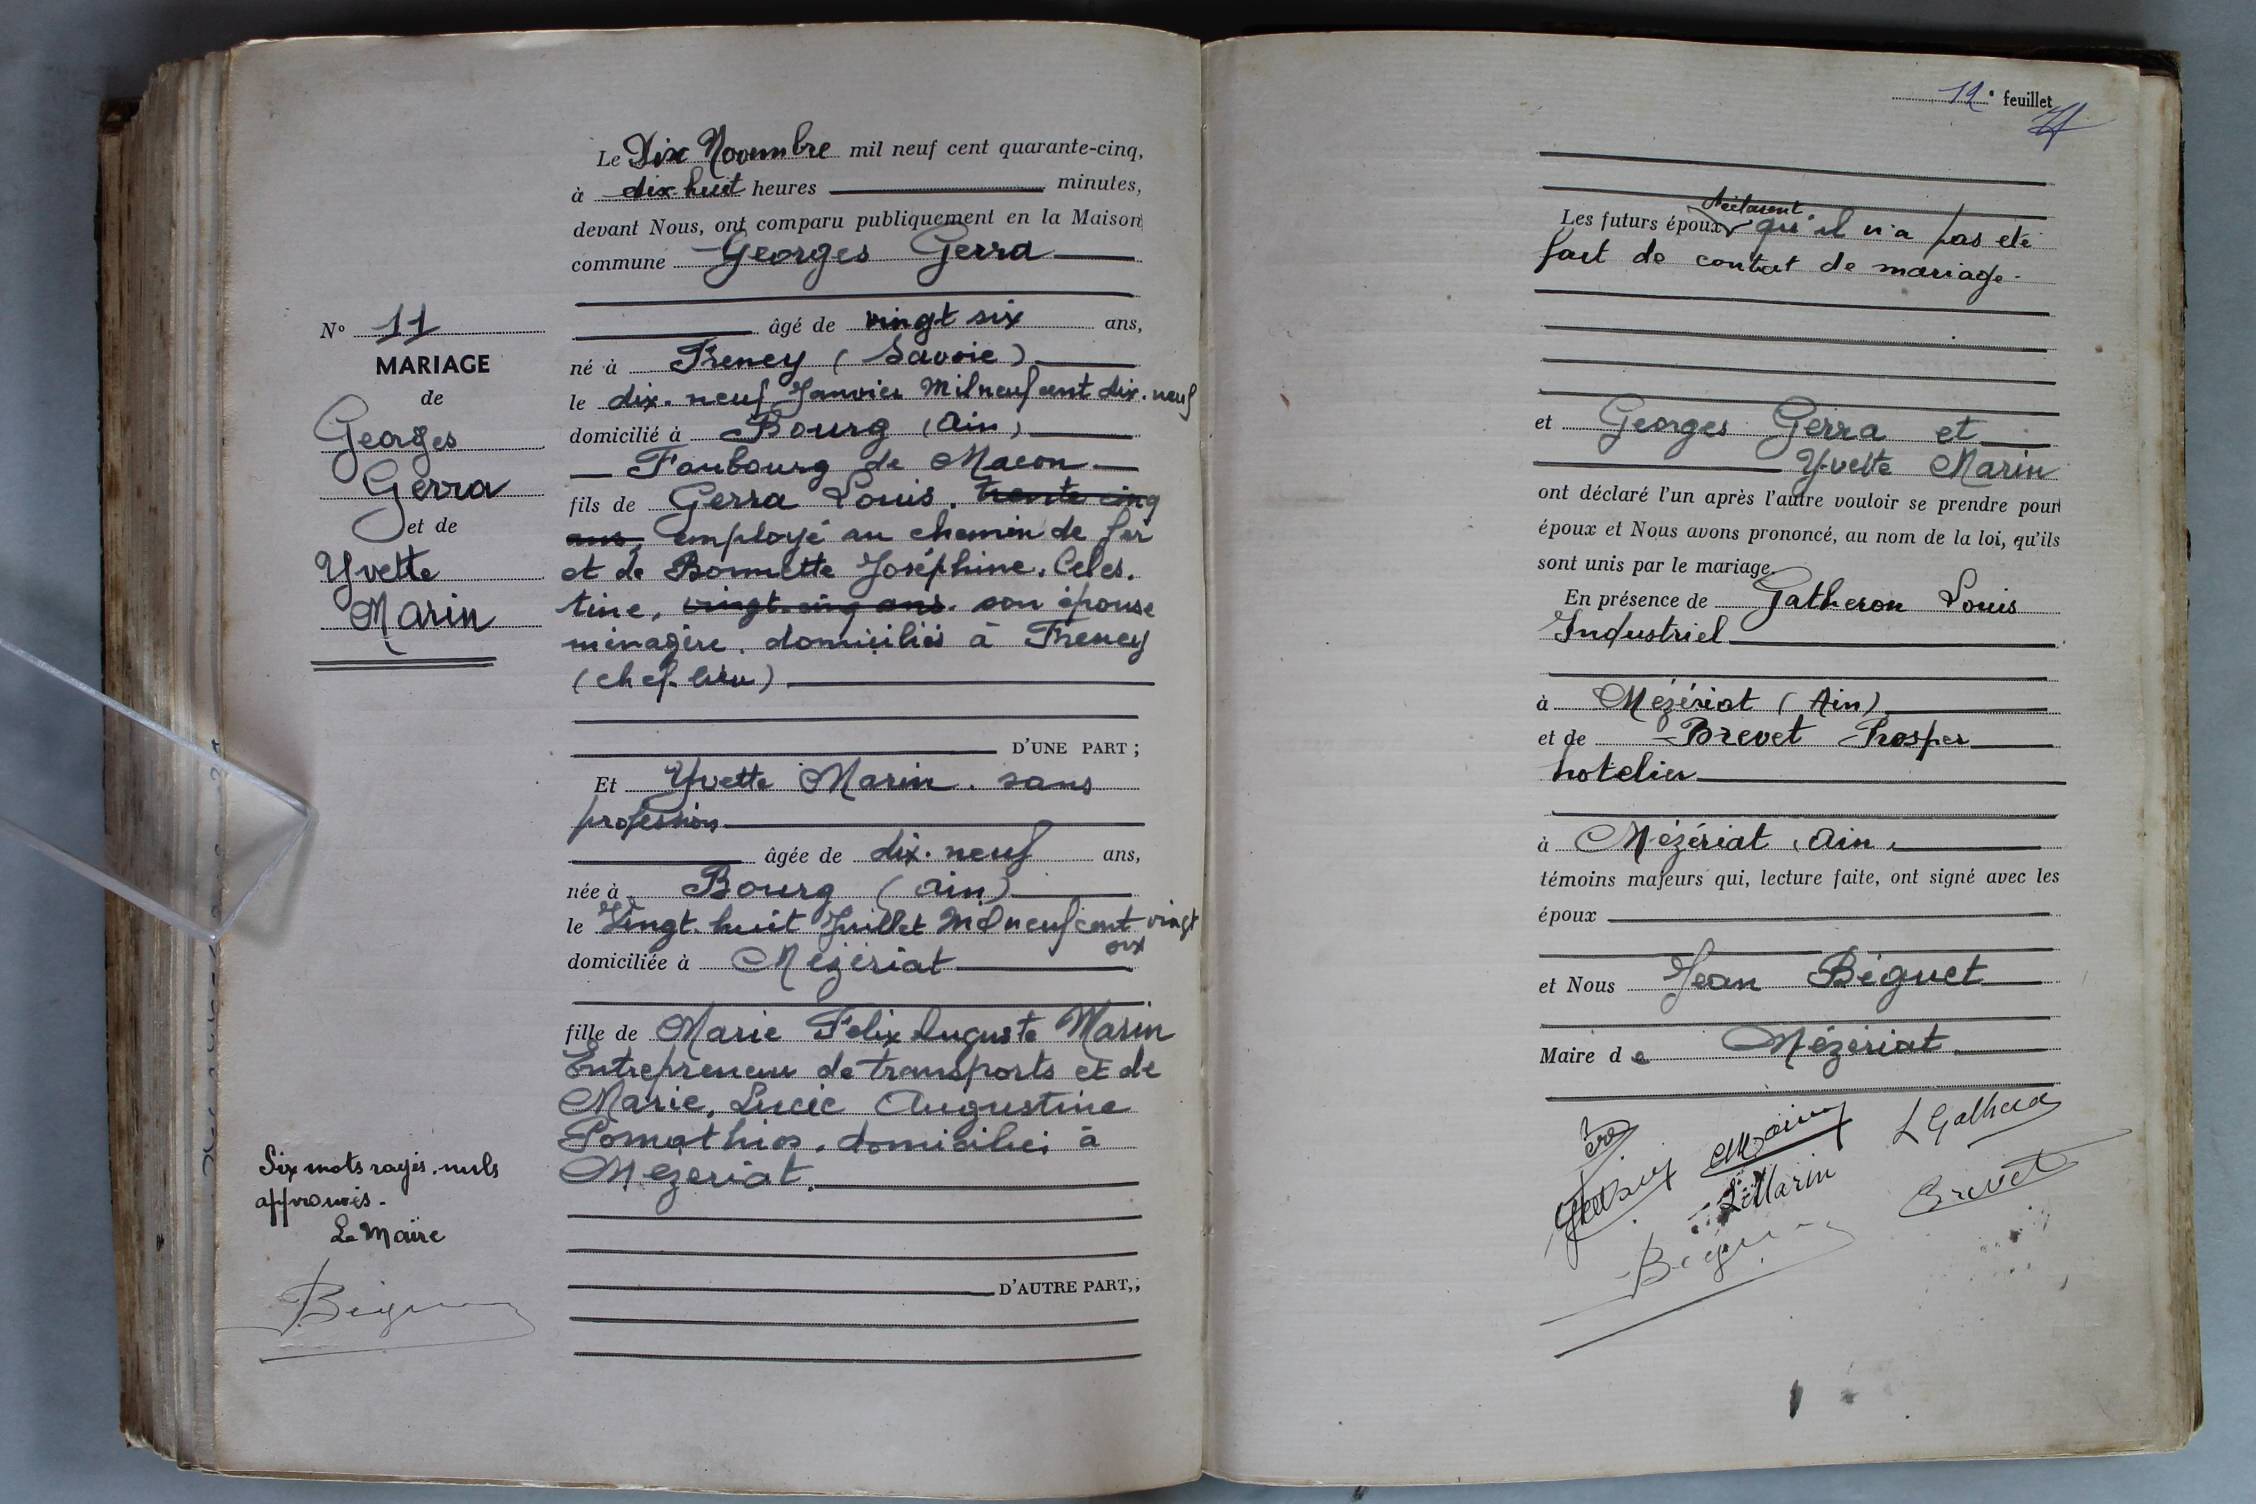 Le Dix Novembre mil neuf cent quarante-cinq,
à dix-huit heures minutes,
devant Nous, ont comparu publiquement en la Maison
commune Georges Gerra
âgé de vingt six ans,
né à Freney (Savoie)
le dix-neuf Janvier Mil neuf cent dix-neuf
domicilié à Bourg (Ain)
Faubourg de Macon
fils de Gerra Louis, trente cinq
ans, employé au chemin de fer
et de Bonnette Joséphine, Céles-
tine, vingt-cinq ans. son épouse
ménagère, domiciliés à Freney
(chef-lieu)
D'UNE PART ;
Et Yvette Marin. sans
profession
âgée de dix-neuf ans,
née à Bourg (Ain)
le Vingt-huit Juillet Mil neuf cent vingt
six
domiciliée à Mézériat
fille de Marie Felix Auguste Marin
Entrepreneur de transports et de
Marie, Lucie Augustine
Pomathios, domiciliés à
Mézériat.
D'AUTRE PART,;
N° 11
MARIAGE
de
Georges
Gerra
et de
Yvette
Marin
Six mots rayés nuls
approuvés.
Le Maire
Béguet
12e feuillet
déclarent
Les futurs époux qu'il n'a pas été
fait de contrat de mariage.
et Georges Gerra et
Yvette Marin
ont déclaré l'un après l'autre vouloir se prendre pour
époux et Nous avons prononcé, au nom de la loi, qu'ils
sont unis par le mariage.
En présence de Gatheron Louis
Industriel
à Mézériat (Ain)
et de Brevet Prosper
hotelier
à Mézériat (Ain)
témoins majeurs qui, lecture faite, ont signé avec les
époux
et Nous Jean Béguet
Maire de Mézériat
L Gatheron
Marin
Brevet
Béguet